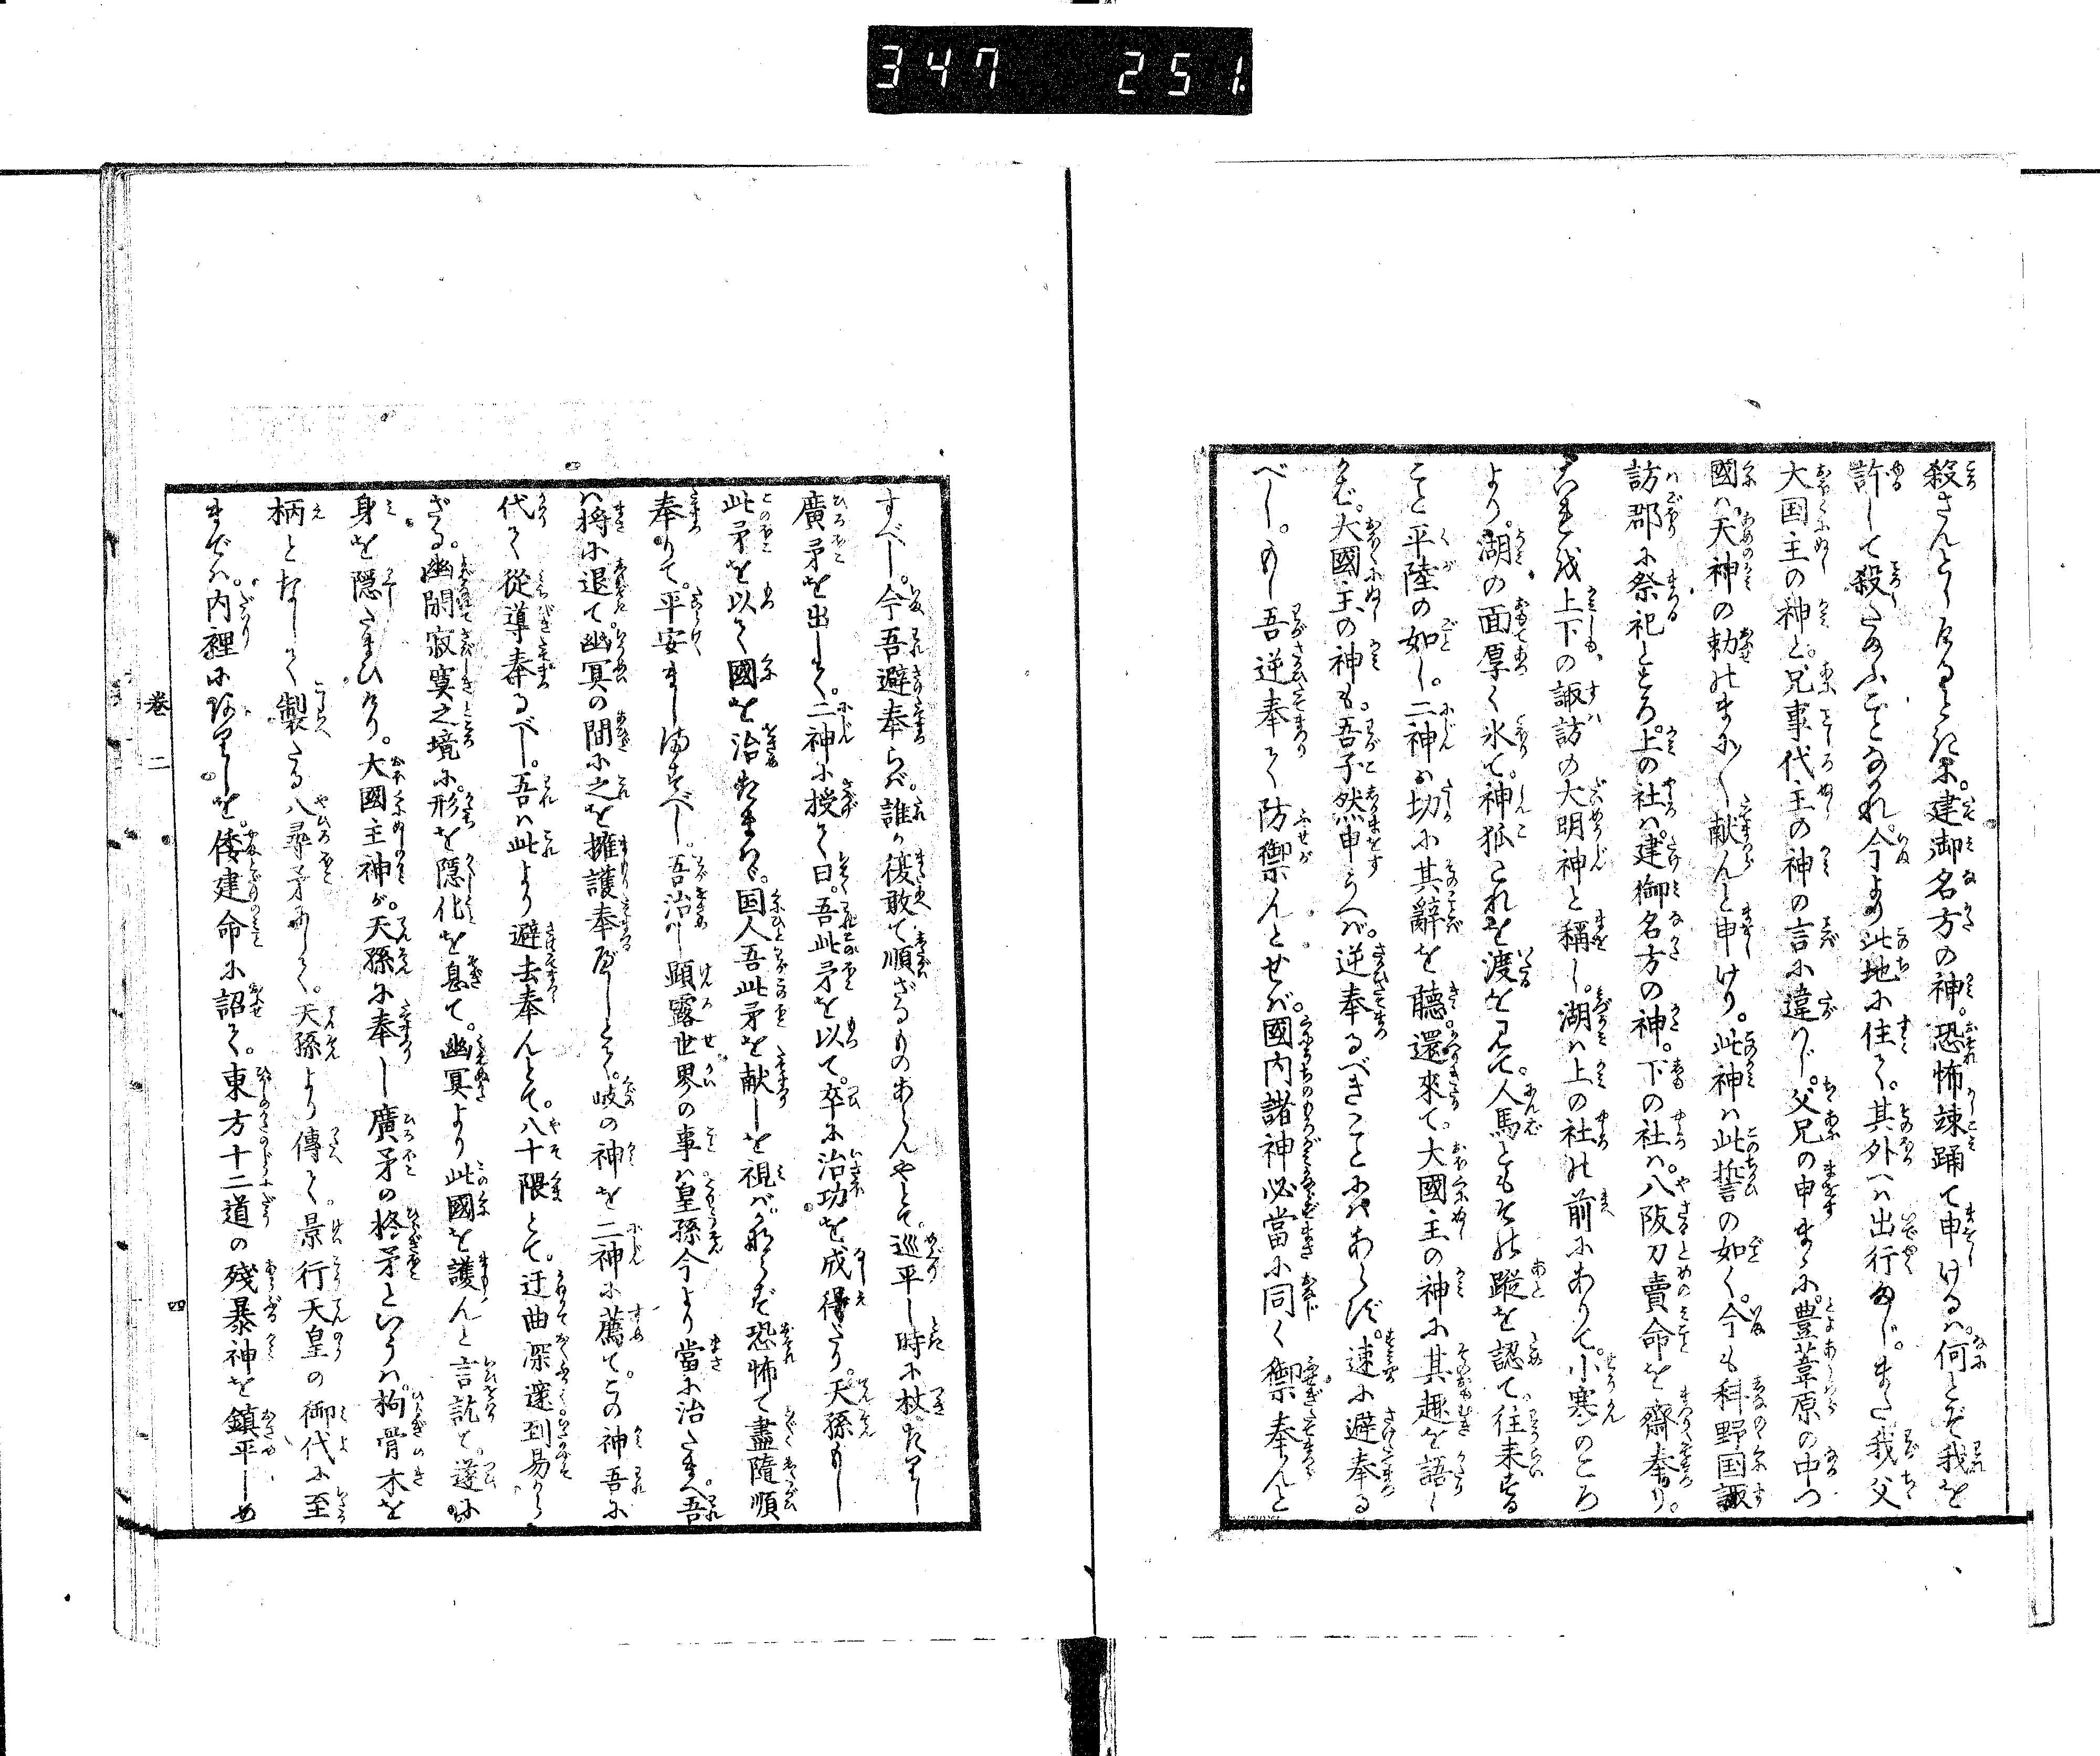 347 251.
殺さんとしけるときに。建御名方の神。恐怖竦踊て申ける。何とぞ我を
許して殺たまふことなかれ。今より此地に住て。其外へは出行まじ。また我父
大国主の神と。兄事代主の神の言に違はじ。父兄の申まゝに。豊葦原の中つ
國は。天神の勅のまに〳〵献んと申けり。此神は此誓の如く。今も科野国諏
訪郡に祭祀ところ。上の社は。建御名方の神。下の社は。八阪刀賣命を齋奉り。
これを上下の諏訪の大明神と稱し。湖は上の社の前にありて。小寒のころ
より。湖の面厚く氷て。神狐これを渡を見て。人馬ともその蹤を認て。往来する
こと平陸の如し。二神は切に其辭を聽。還來て。大國主の神に其趣を語し
かば。大國主の神も。吾子然申うへは。逆奉るべきことにはあらず。速に避奉る
べし。もし吾逆奉て防禦んとせば。國内諸神必當に同く禦奉んと
すべし。今吾避奉らば。誰か復敢て順ざるものあらんやとて。巡平し時に杖たりし
廣矛を出して。二神に授て曰。吾此矛を以て。卒に治功を成得たり。天孫もし
此矛を以て國を治たまはゞ。国人吾此矛を献しを視ば。かならず恐怖て盡隨順
奉りて。平安ましますべし。吾治し顕露世界の事は。皇孫今より當に治たまへ。吾
は將に退て幽冥の間に之を擁護奉るべしとて。岐の神を二神に薦て。この神吾に
代て從導奉るべし。吾は此より避去奉んとて。八十隈とて。迂曲深邃到易から
ざる。幽閑寂寞之境に。形を隠化を息て。幽冥より此國を護んと言訖て。遂に
身を隠たまひけり。大國主神が。天孫に奉し廣矛の柊矛といふは。枸骨木を
柄となして製たる八尋矛にして。天孫より傳て。景行天皇の御代に至
までは。内裡にありしを。倭建命に詔て。東方十二道の殘暴神を鎮平しめ
卷二
四